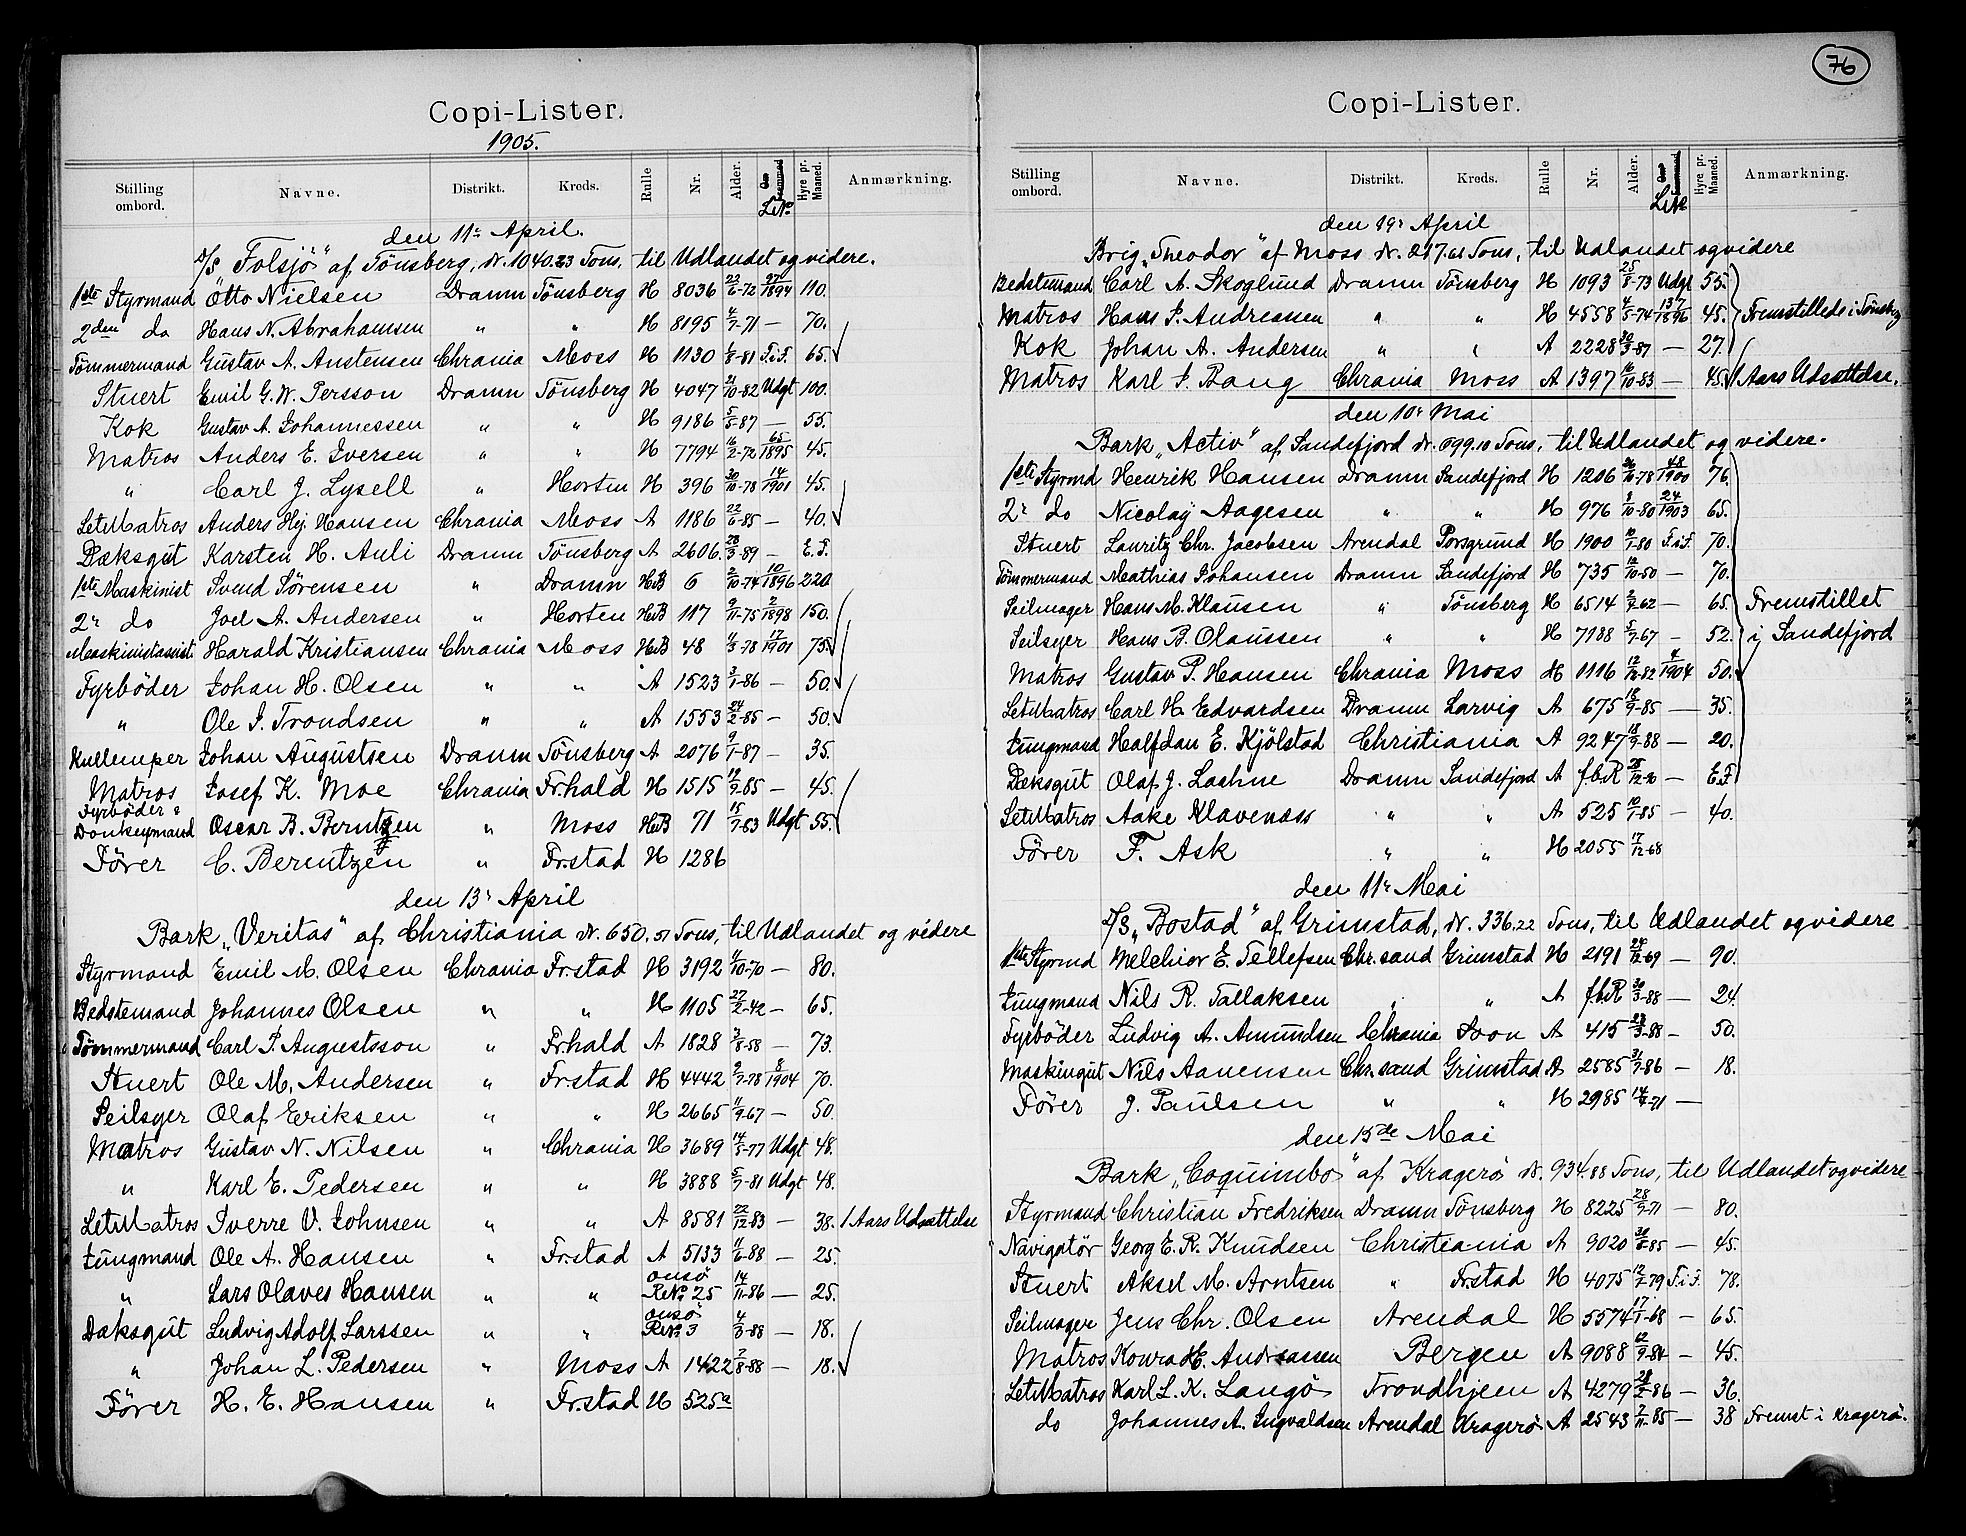 Copi-Lister.
1905.
Stilling ombord. Navne. Distrikt. Kreds. Rulle Nr. Alder. Hyre pr. Maaned. Anmærkning.
den 11te April.
D/S „Folsjö" af Tönsberg, Dr. 1040.23 Tons, til Udlandet og videre.
1ste Styrmand Otto Nielsen Dramn Tönsberg H 8036 22/6-72 27/1894 110.
2den do Hans N. Abrahamsen " " H 8195 4/7-71 — 70.
Tömmermand Gustav A. Anstensen Chrania Moss H 1130 1/8-81 F.i.F. 65.
Stuert Emil G.W. Persson Dramn Tönsberg H 4047 21/10-82 Udgt 100.
Kok Gustav A. Johannessen " " H 9186 5/5-87 — 55.
Matros Anders E. Iversen " " H 7794 16/2-72 65/1895 45.
" Carl J. Lysell " Horten H 396 30/10-78 14/1901 45.
LetMatros Anders Hj. Hansen Chrania Moss A 1186 22/6-85 — 40.
Dæksgut Karsten H. Auli Dramn Tönsberg A 2606. 28/3-89 — E.F.
1ste Maskinist Svend Sörensen " Dramn HeB 6 2/10-74 10/1896 220
2r do Joel A. Andersen " Horten HeB 117 9/11-75 2/1898 150.
Maskinistassist. Harald Kristiansen Chrania Moss HeB 48 11/3-78 17/1901 75.
Fyrböder Johan H. Olsen " " A 1523 3/1-86 — 50.
" Ole J. Trondsen " " A 1553 24/2-85 — 50.
Kullemper Johan Augustsen Dramn Tönsberg A 2076 9/1-87 — 35.
Matros Josef K. Moe Chrania Frhald H 1515 12/9-85 — 45.
Fyrböder & Donkeymand Oscar B. Berntzen " Moss HeB 71 15/7-83 Udgt 55.
Förer C. Berentzen " Fr.stad H 1286
den 13r April
Bark „Veritas" af Christiania Dr. 650.51 Tons, til Udlandet og videre
Styrmand Emil M. Olsen Chrania Frstad H 3192 1/10-70 — 80.
Bedstemand Johannes Olsen " " H 1105 27/2-42 — 65.
Tömmermand Carl P. Augustsson " Frhald A 1828 3/8-58 — 73.
Stuert Ole M. Andersen " Frstad H 4442 9/7-78 8/1904 70.
Seilsyer Olaf Eriksen " " H 2665 11/9-67 — 50.
Matros Gustav N. Nilsen " Chrania H 3689 14/5-77 Udgt 48.
" Karl E. Pedersen " " H 3888 5/7-81 Udgt 48.
LetMatros Sverre V. Johnsen " " A 8581 22/12-83 — 38. 1 Aars Udsættelse
Jungmand Ole A. Hansen " Frstad A 5133 11/6-88 — 25.
" Lars Olaves Hansen " " Onsö R.No. 25 14/11-86 — 25.
Dæksgut Ludvig Adolf Larssen " " Onsö R.No. 3 4/3-88 — 18.
" Johan L. Pedersen " Moss A 1422 2/8-88 — 18.
Förer H. E. Hansen " Frstad H 525a
76
Copi-Lister.
Stilling ombord. Navne. Distrikt. Kreds. Rulle Nr. Alder. Hyre pr. Maaned. Anmærkning.
den 19r April
Brig „Theodor" af Moss Dr. 217.61 Tons, til Udlandet og videre
Bedstemand Carl A. Skoglund Dramn Tönsberg H 1093 25/5-73 Udgt 55.
Matros Hans P. Andreassen " " H 4558 4/5-74 137/1896 45. Fremstilledes i Tönsbrg
Kok Johan A. Andersen " " A 2228 30/3-87 — 27.
Matros Karl J. Bang Chrania Moss A 1397 16/10-83 — 45. 1 Aars Udsættelse.
den 10r Mai
Bark „Activ" af Sandefjord Dr. 699.10 Tons, til Udlandet og videre.
1ste Styrmd Henrik Hansen Dramn Sandefjord H 1206 26/10-78 48/1900 76.
2r do Nicolay Aagesen " " H 976 8/10-80 24/1903 65.
Stuert Lauritz Chr. Jacobsen Arendal Porsgrund H 1900 10/1-80 F.i.F. 70.
Tömmermand Mathias Johansen Dramn Sandefjord H 735 12/10-50 — 70.
Seilmager Hans M. Klausen " Tönsberg H 6514 2/9-62 — 65. Fremstillet
Seilsyer Hans B. Olaussen " " H 7188 5/7-67 — 52. i Sandefjord
Matros Gustav P. Hansen Chrania Moss H 1116 12/12-82 4/1904 50.
LetMatros Carl H. Edvardsen Dramn Larvig A 675 16/9-85 — 35.
Jungmand Halfdan E. Kjölstad Christiania A 9247 18/9-88 — 20.
Dæksgut Olaf J. Laehne Dramn Sandefjord A f.b.R 25/12-90 — E.F.
LetMatros Aake Klavenæss " " A 525 10/1-85 — 40.
Förer F. Ask " " H 2055 17/12-68
den 11r Mai
D/S „Bostad" af Grimstad, Dr. 336.22 Tons, til Udlandet og videre
1ste Styrmd Melchior E. Tellefsen Chr.sand Grimstad H 2191 28/12-69 — 90.
Jungmand Nils R. Tallaksen " " A f.b.R 30/3-88 — 24.
Fyrböder Ludvig A. Amundsen Chrania Soon A 415 23/3-88 — 50.
Maskingut Nils Aanensen Chr.sand Grimstad A 2585 31/7-86 — 18.
Förer J. Paulsen " " H 2985 14/4-71 —
den 15de Mai
Bark „Coquimbo" af Kragerö Dr. 934.88 Tons, til Udlandet og videre
Styrmand Christian Fredriksen Dramn Tönsberg H 8225 28/9-71 — 80.
Navigatör Georg E. R. Knudsen Christiania A 9020 31/8-85 — 45.
Stuert Aksel M. Arntsen " Frstad H 4075 12/7-79 F.i.F. 78.
Seilmager Jens Chr. Olsen Arendal H 5574 17/1-68 — 65.
Matros Konrad H. Andreassen Bergen A 9088 12/9-84 — 45.
LetMatros Karl L. K. Langö Trondhjem A 4279 28/2-86 — 36.
do Johannes A. Ingvaldsen Arendal Kragerö A 2543 7/11-85 — 38 Fremst i Kragerö.